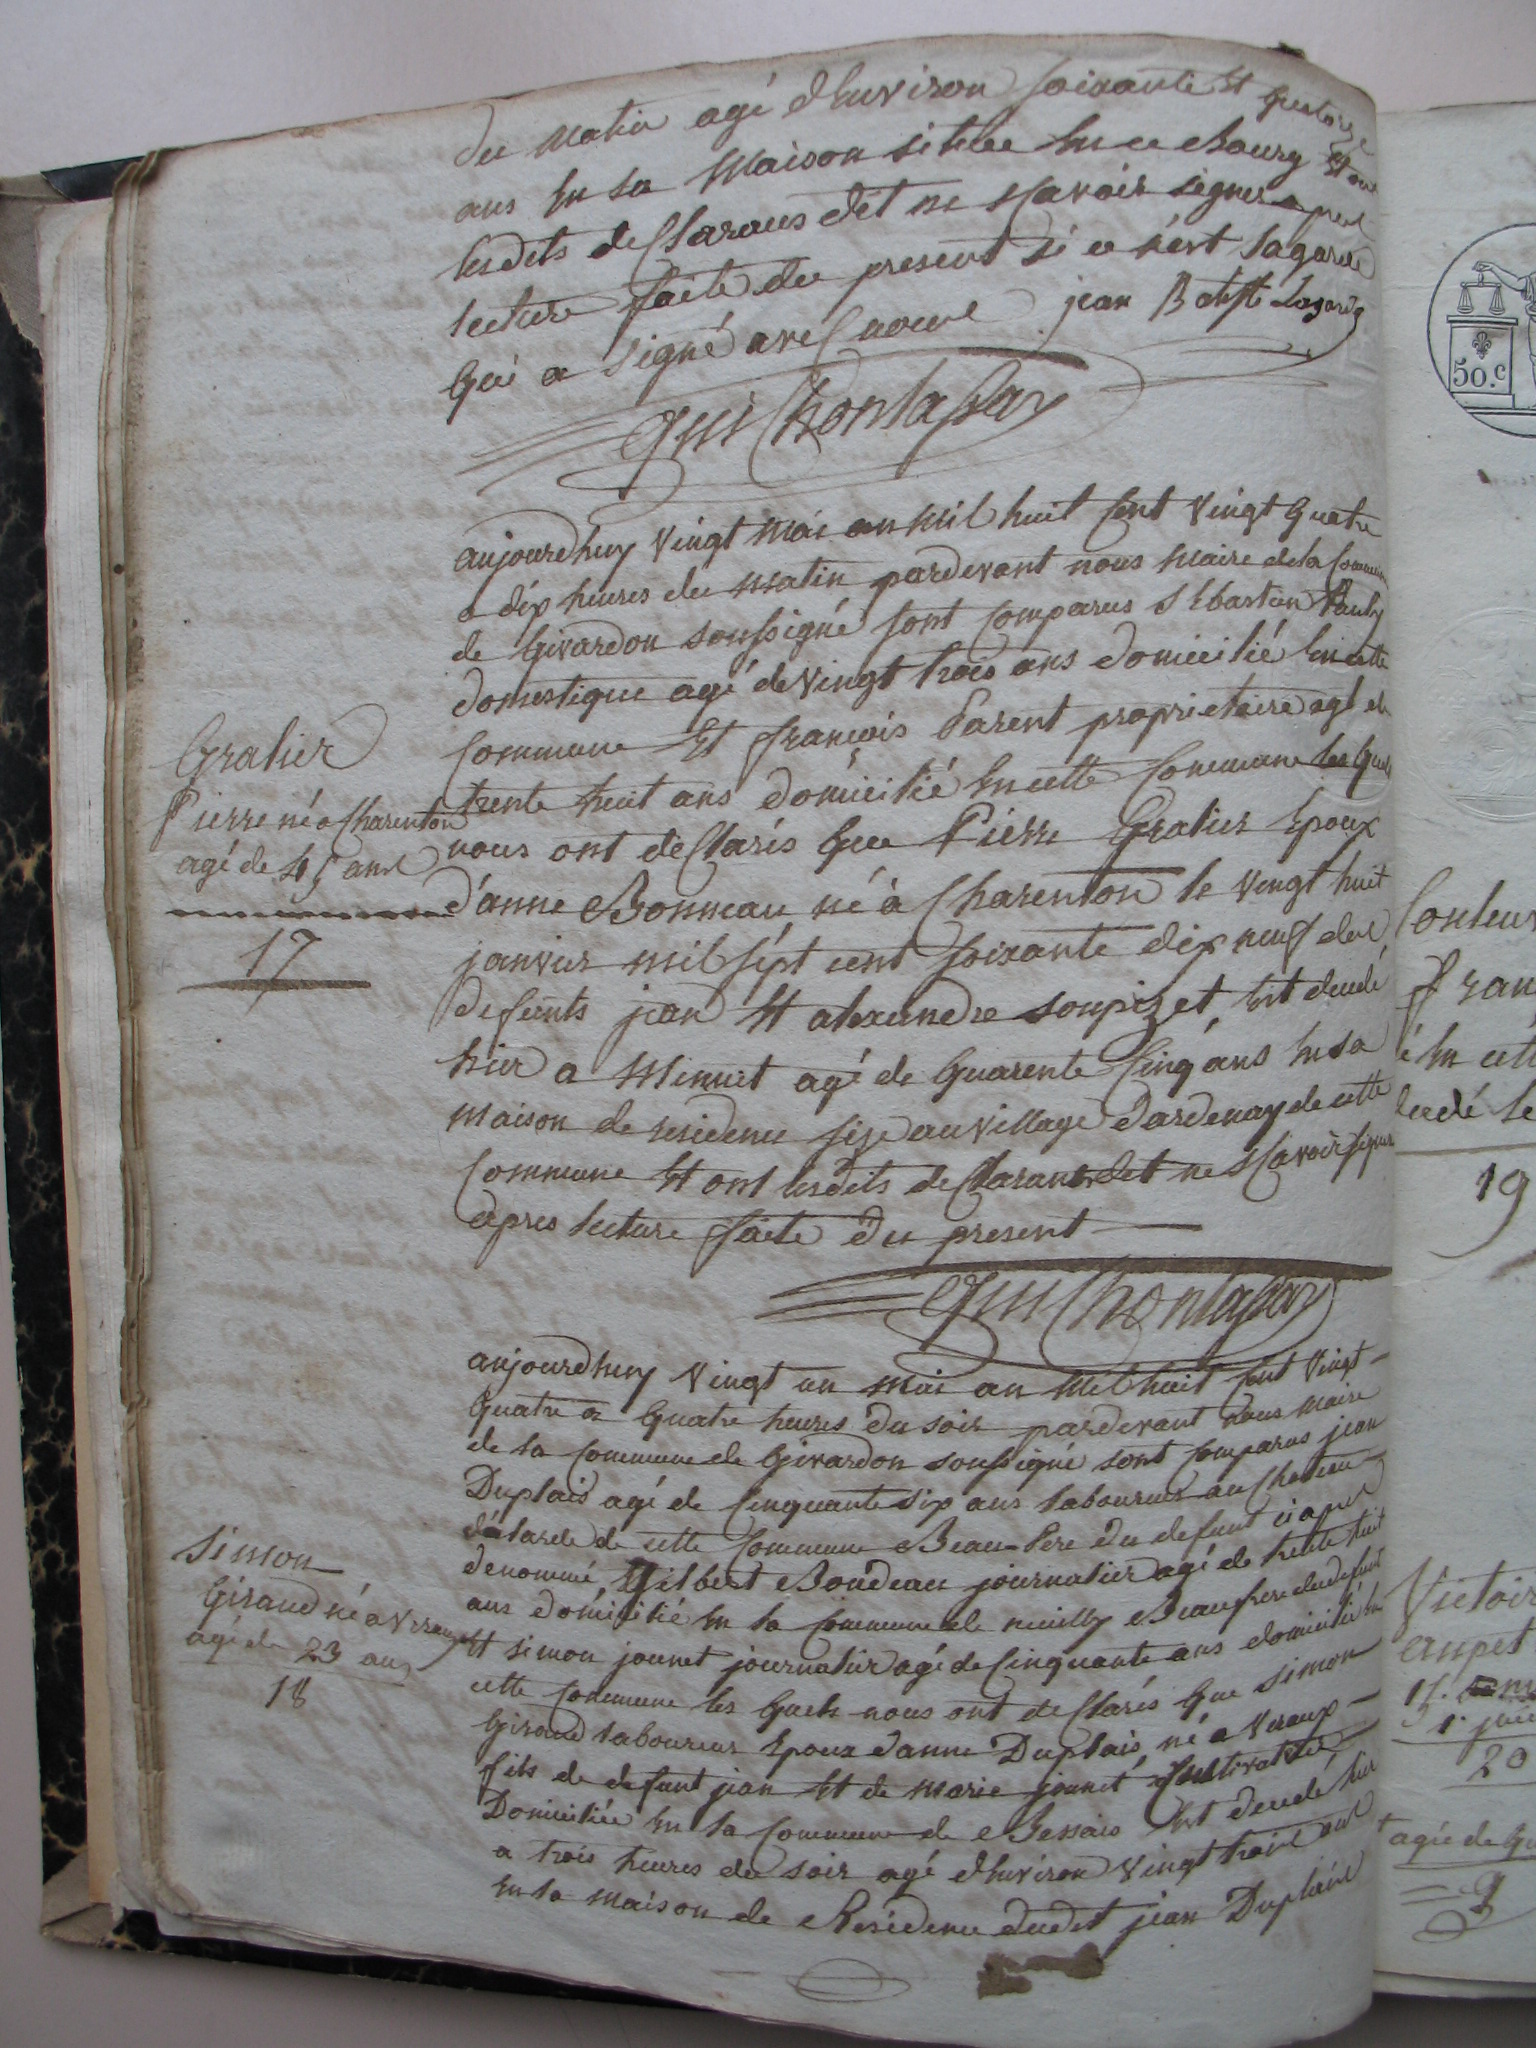 du matin agé d'huviron soixante et quatorze
ans en sa maison située en ce Bourg et ont
lesdits declarans dit ne scavoir signer apres
lecture faite du present si ce n'est Lagarde
qui a signé avec nous jean Batiste Lagarde
aujourdhuy vingt mai an mil huit cent vingt quatre
a dix heures du matin pardevant nous maire de la commune
de Givardon soussigné sont comparus sébastien Pauly
domestique agé de vingt trois ans domicilié en cette
commune et françois Parent proprietaire agé de
trente huit ans domicilié en cette commune les quels
nous ont declarés que Pierre Gratier Epoux
d'anne Bonneau né à Charenton le vingt huit
janvier mil sept cent soixante dix neuf des
defunts jean et alexandre soupizet, est decedé
hier a minuit agé de quarente cinq ans en sa
maison de residence size au village d'ardenay de cette
commune et ont lesdits declarans dit ne scavoir signer
apres lecture faite du present
Gratier
Pierre né a Charenton
agé de 45 ans
17
aujourdhuy vingt un mai an mil huit cent vingt
quatre a quatre heures du soir pardevant nous maire
de la commune de Givardon soussigné sont comparus jean
Duplais agé de cinquante six ans laboureur au chateau
de cette commune Beau-Pere du defunt ci apres
denommé, Gilbert Boudeau journalier agé de trente huit
ans domicilié en la commune de neuilly Beaufrere du defunt
et simon jounet journalier agé de cinquante ans domicilié en
cette commune les quels nous ont declarés que simon
Giraud laboureur Epoux d'anne Duplais, né a Veraux
fils de defunt jean et de marie jounet cultivatrice
Domiciliée en la commune de Bessais est decedé hier
a trois heures du soir agé d'huviron vingt trois ans
en sa maison de Residence dudit jean Duplais
simon
Giraud né a Veraux
agé de 23 ans
18
50.c
19
Victoire
20
9